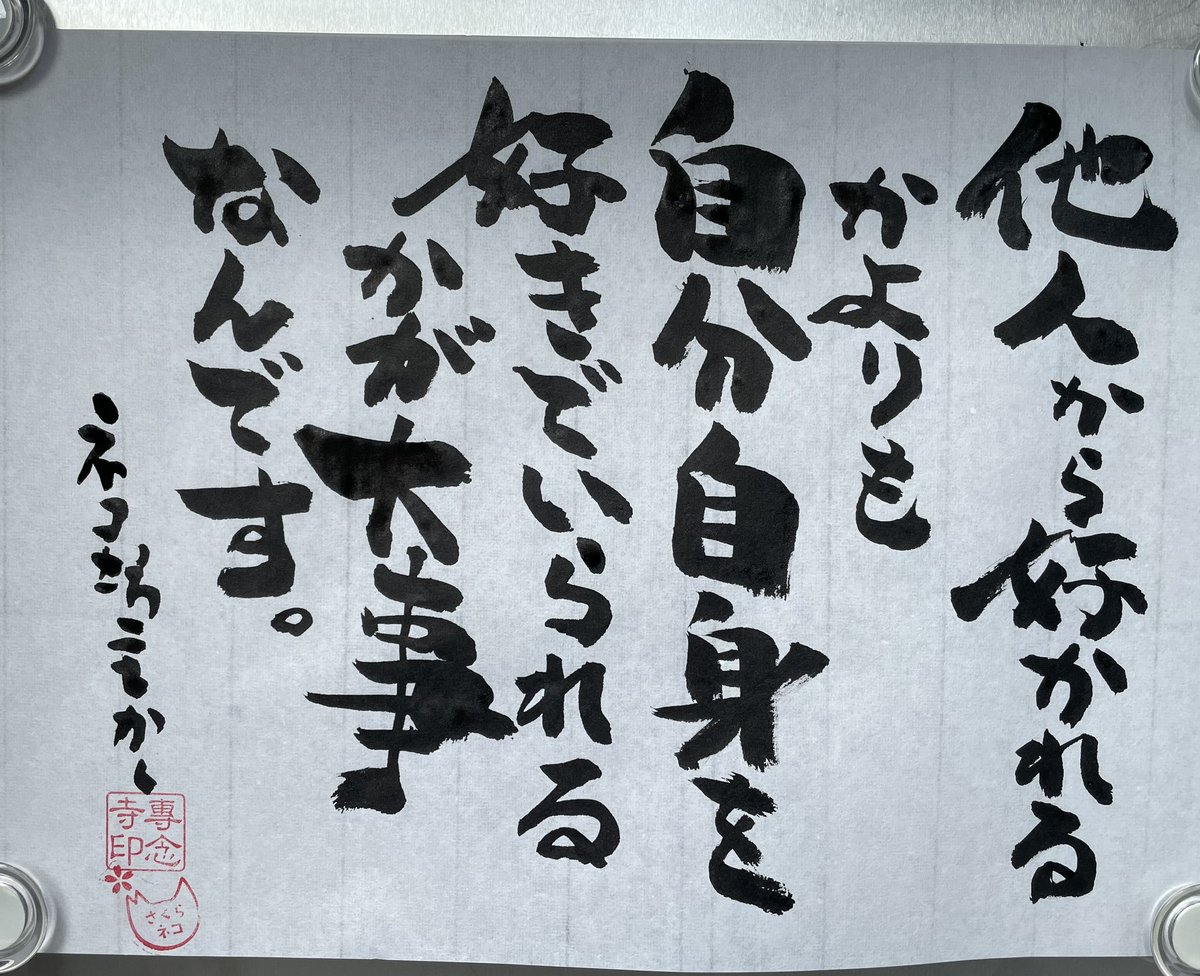 他人から好かれる
かよりも
自分自身を
好きでいられる
かが大事
なんです。
ネコ坊主かく
專念
寺印
さくら
ネコ